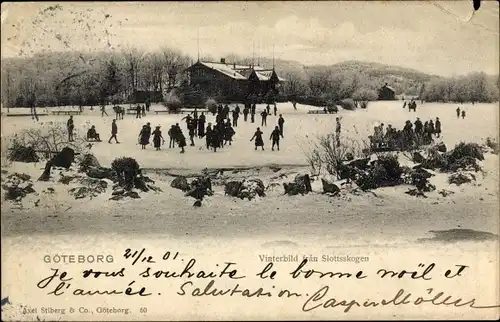 GÖTEBORG 21/12 01. Vinterbild från Slottsskogen
Je vous souhaite le bonne noël et
l'année. Salutation. Casper Möller
Axel Stiberg & Co., Göteborg. 60